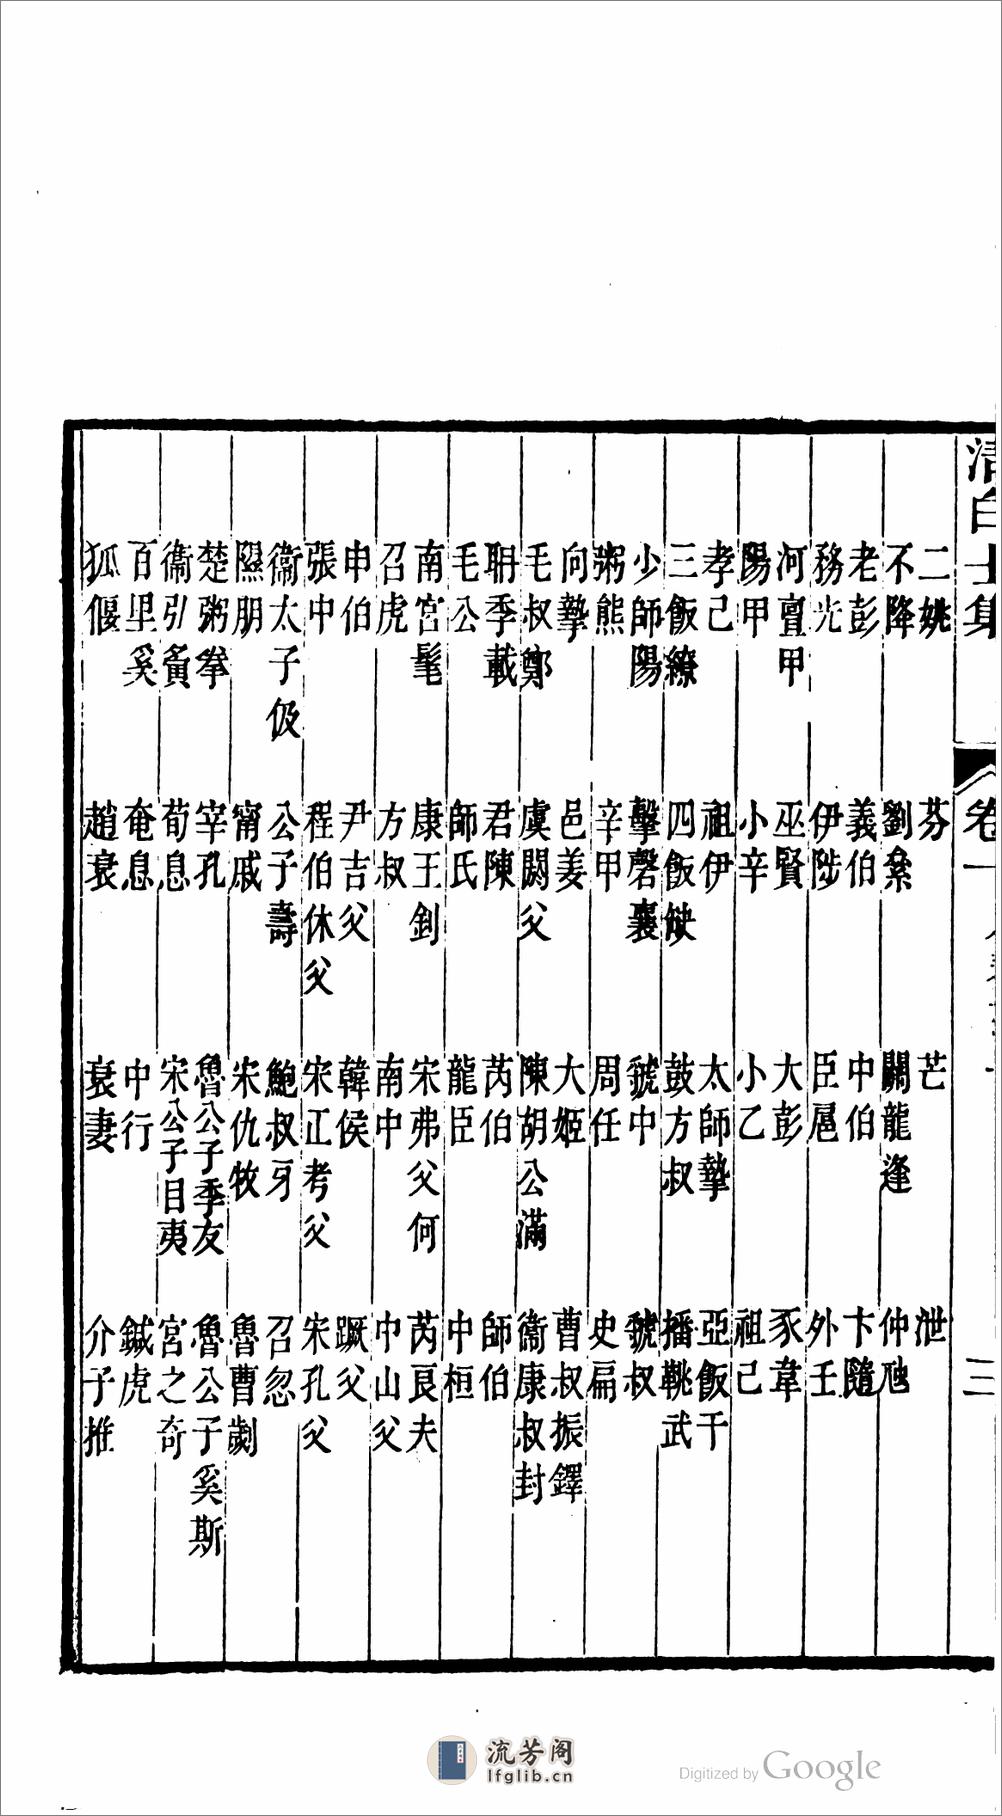 清白士集 卷一 三
二姚 芬 芒 泄
不降 劉絫 關龍逢 仲虺
老彭 義伯 中伯 卞隨
務光 伊陟 臣扈 外壬
河亶甲 巫賢 大彭 豕韋
陽甲 小辛 小乙 祖己
孝己 祖伊 太師摯 亞飯干
三飯繚 四飯缺 鼓方叔 播鞉武
少師陽 擊磬襄 虢中 虢叔
粥熊 辛甲 周任 史扁
向摯 邑姜 大姬 曹叔振鐸
毛叔鄭 虞閼父 陳胡公滿 衞康叔封
耼季載 君陳 芮伯 師伯
毛公 師氏 龍臣 中桓
南宮髦 康王釗 宋弗父何 芮良夫
召虎 方叔 南中 中山父
申伯 尹吉父 韓侯 蹶父
張中 程伯休父 宋正考父 宋孔父
衞太子伋 公子壽 鮑叔牙 召忽
隰朋 甯戚 宋仇牧 魯曹劌
楚粥拳 宰孔 魯公子季友 魯公子奚斯
衞弘寅 荀息 宋公子目夷 宮之奇
百里奚 奄息 中行 鍼虎
狐偃 趙衰 衰妻 介子推
流芳阁
lfglib.cn
Digitized by Google